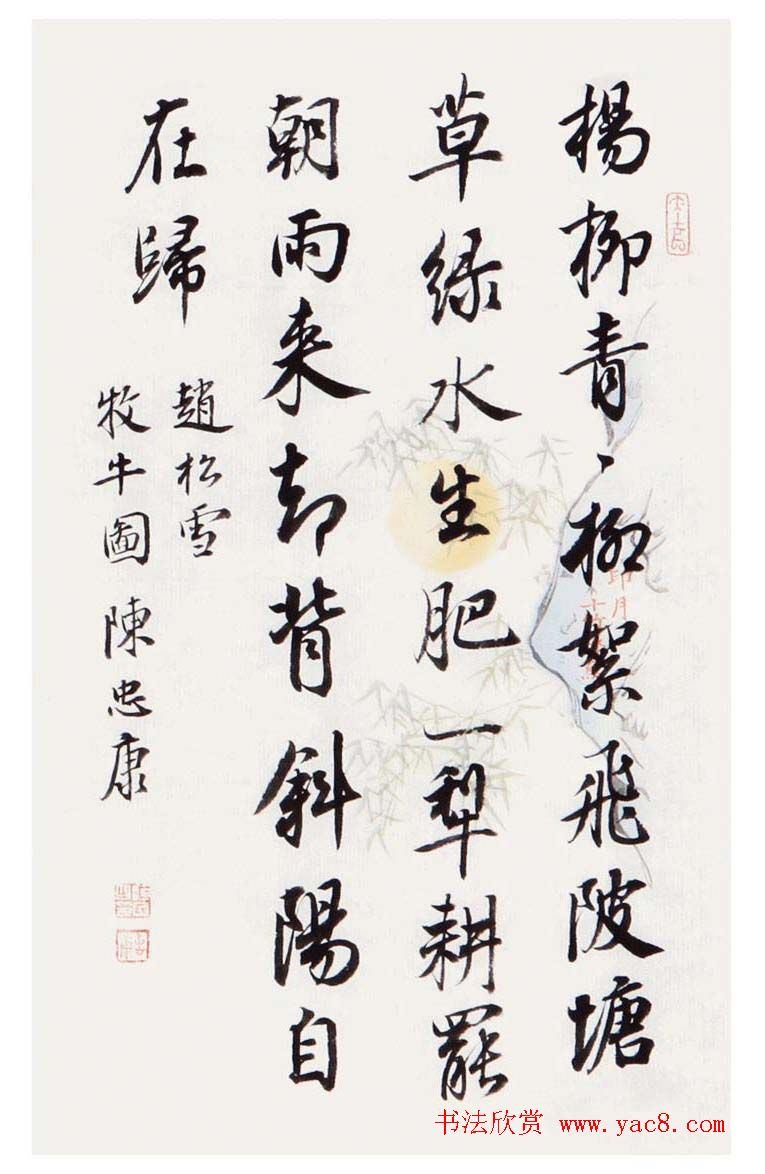 楊柳青、柳絮飛陂塘
草緑水生肥一犁耕罷
朝雨来却背斜陽自
在歸
趙松雪
牧牛圖陳忠康
印月
书法欣赏 www.yac8.com